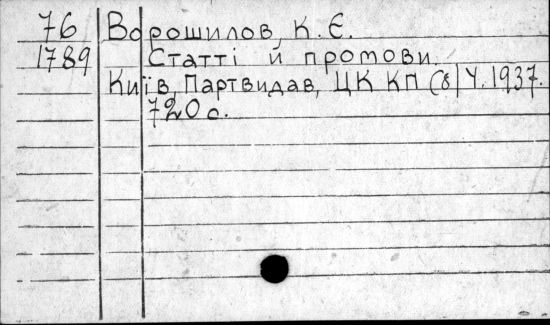 76 Ворошилов, К. Є.
1789 Статті й промови.
Київ, Партвидав, ЦК КП(б)У. 1937.
720 с.